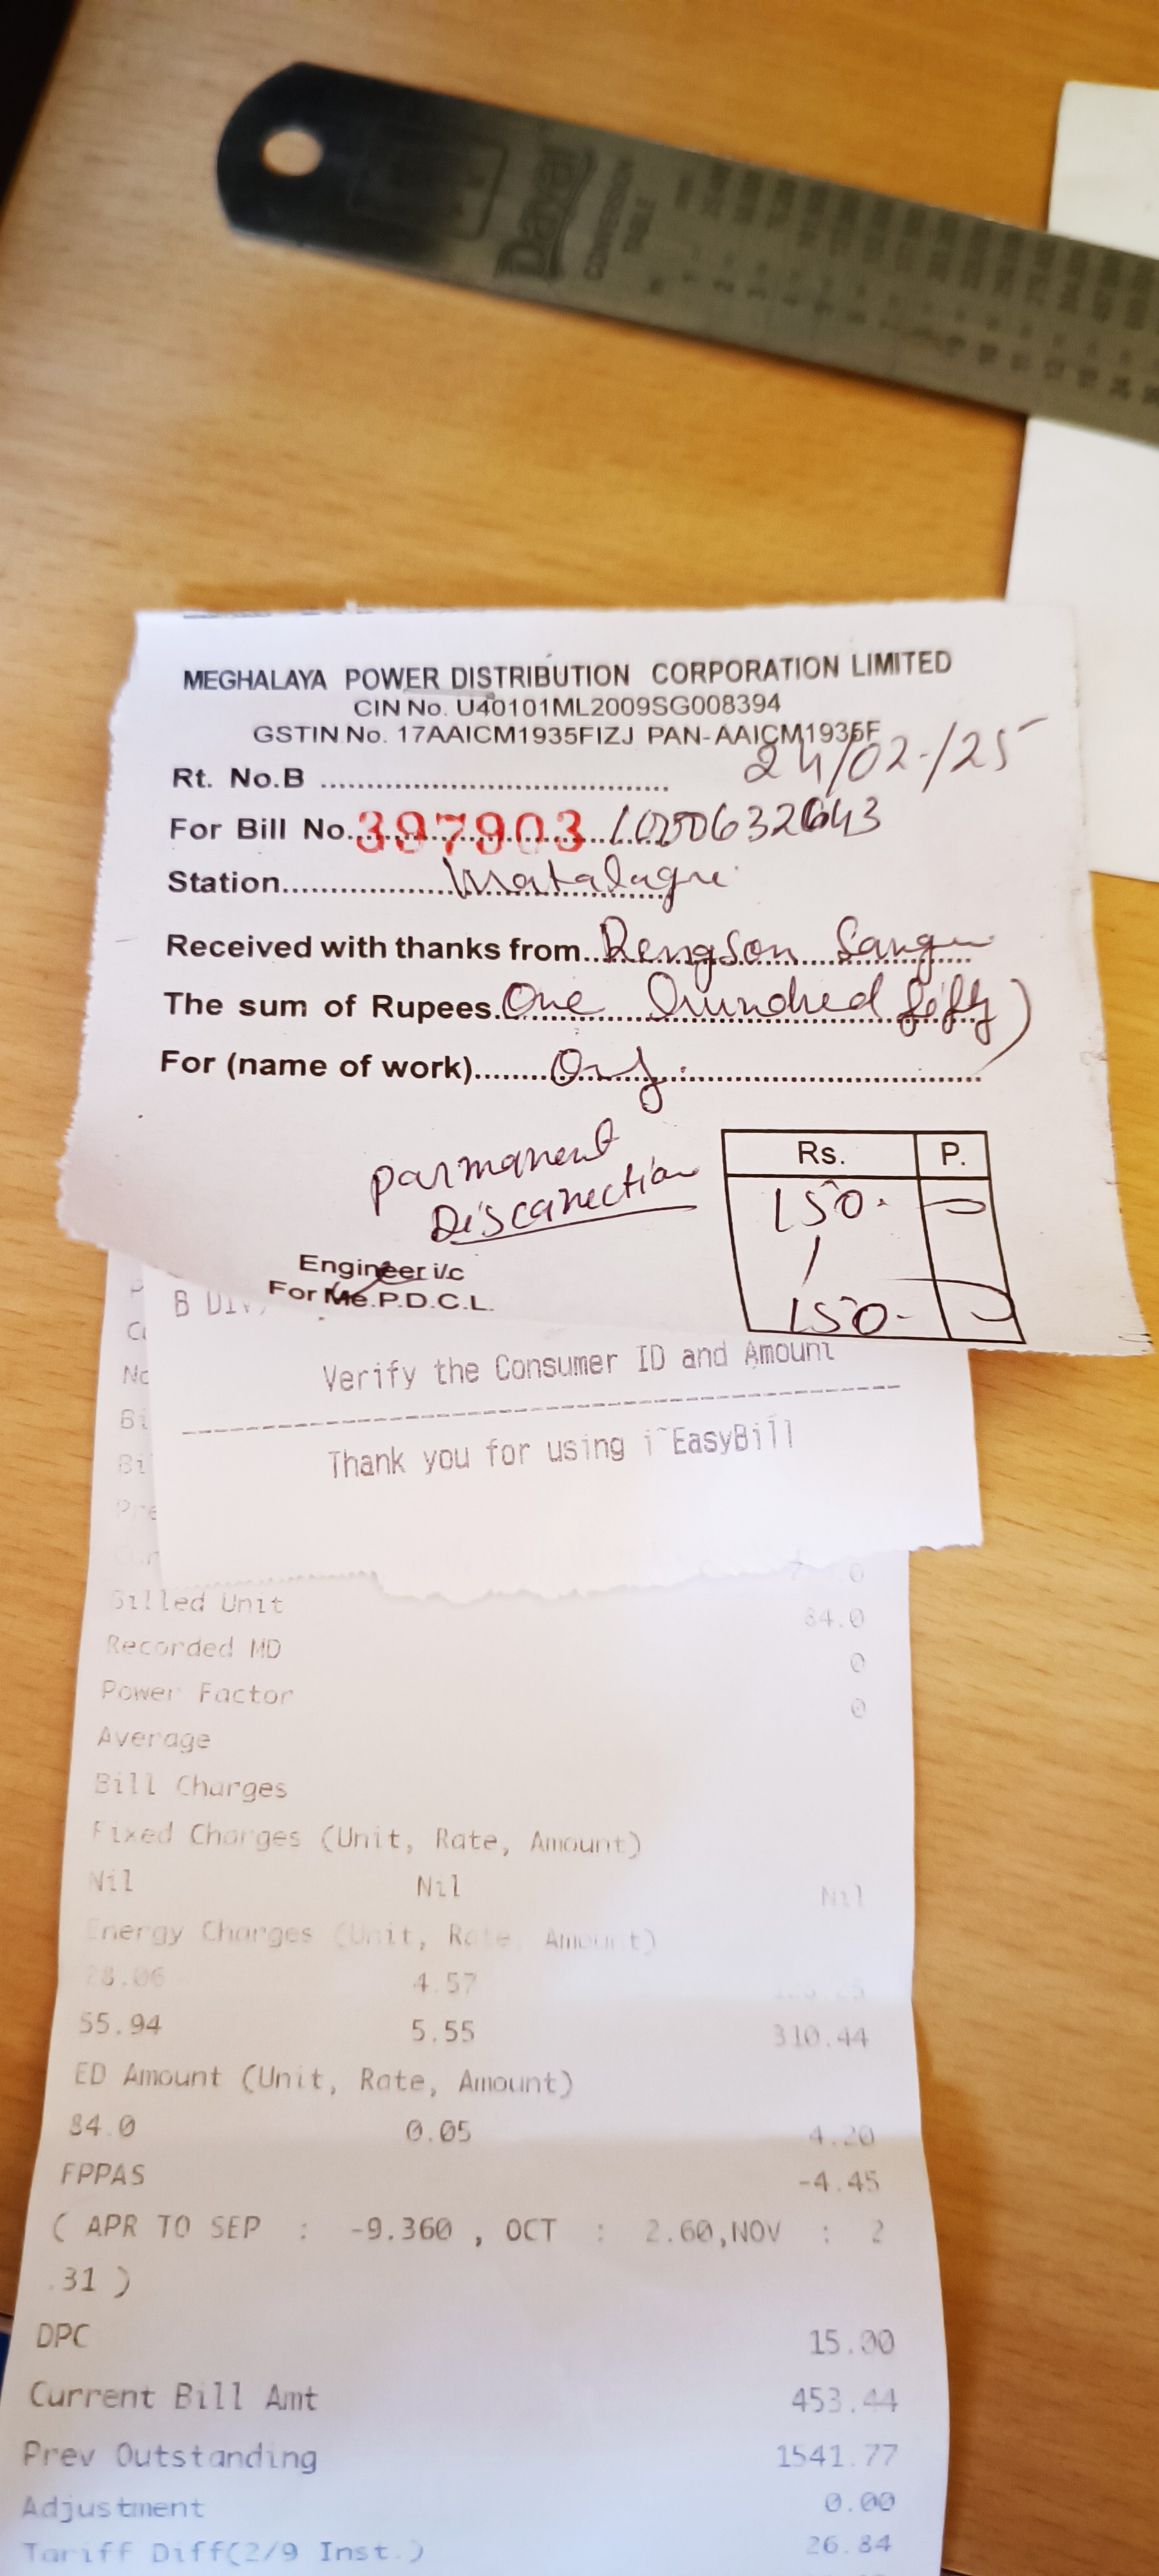 Dayal
CONVERSION
TABLE
MEGHALAYA POWER DISTRIBUTION CORPORATION LIMITED
CIN No. U40101ML2009SG008394
GSTIN No. 17AAICM1935FIZJ PAN-AAICM1935F
24/02-/25
Rt. No.B
For Bill No. 397903
Station
Received with thanks from Rengson
The sum of Rupees One hundred fifty)
For (name of work) Only.
parmanent
Discanection
Rs. P.
150.
150-
Engineer i/c
For Me.P.D.C.L.
Verify the Consumer ID and Amount
Thank you for using i~EasyBill
Billed Unit 84.0
Recorded MD 0
Power Factor 0
Average
Bill Charges
Fixed Charges (Unit, Rate, Amount)
Nil Nil Nil
Energy Charges (Unit, Rate, Amount)
28.06 4.57
55.94 5.55 310.44
ED Amount (Unit, Rate, Amount)
84.0 0.05 4.20
FPPAS -4.45
( APR TO SEP : -9.360 , OCT : 2.60,NOV : 2
.31 )
DPC 15.00
Current Bill Amt 453.44
Prev Outstanding 1541.77
Adjustment 0.00
Tariff Diff(2/9 Inst.) 26.84